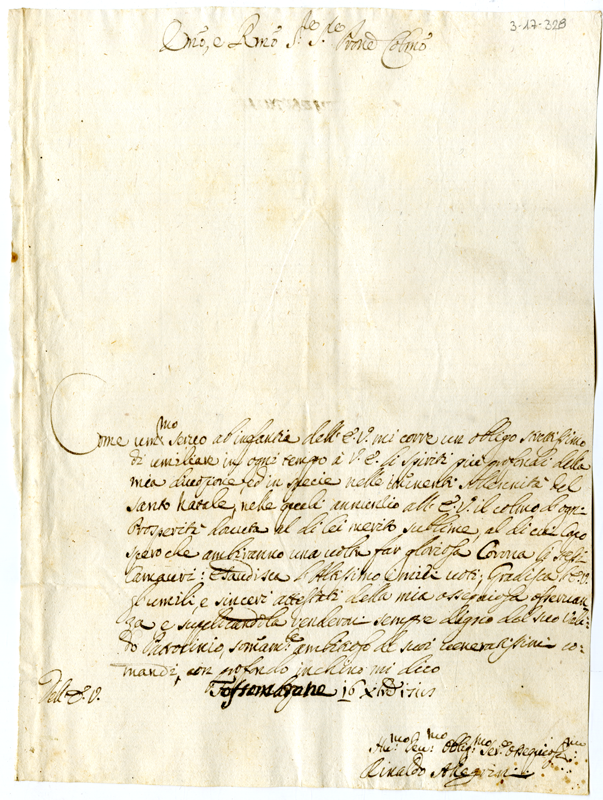 3-17-328
Emo, e Rmo Sre Sre Prone Colmo
Come ummo servo ab infantia dell' E.V. mi corre un obligo strettissimo
di umiliare in ogni tempo à V.E. li spiriti più profondi della
mia divozione, ed in specie nelle imminenti Allegrezze del
Santo Natale, nelle quali annuntio all' E.V. il colmo d'ogni
Prosperità dovuta al di lei merito sublime, al di cui Capo
spero che ambiranno una volta far gloriosa Corona li
: Esaudisca l'Altissimo i miei voti; Gradisca l'E.V.
gl'umili, e sinceri attestati della mia ossequiosa osservan-
za e supplicandola rendermi sempre degno del suo
do Patrocinio, ambizioso de suoi veneratissimi co-
mandi, con profondo inchino mi dico
Dell' E.V.
Fossombrone 16 Xbre
Hummo Obligmo Serre ossequiosmo
Rinaldo